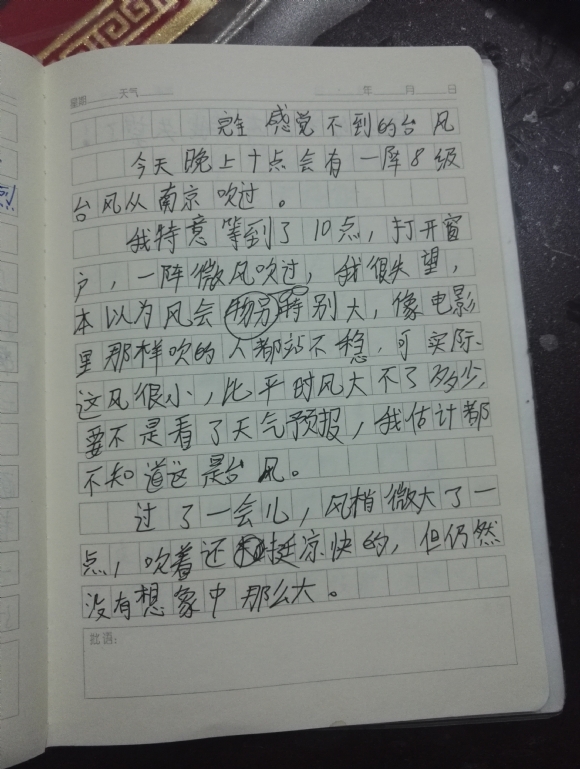 星期 天气 年 月 日
完全感觉不到的台风
今天晚上十点会有一阵8级
台风从南京吹过。
我特意等到了10点，打开窗
户，一阵微风吹过，我很失望，
本以为风会特别大，像电影
里那样吹的人都站不稳，可实际
这风很小，比平时风大不了多少，
要不是看了天气预报，我估计都
不知道这是台风。
过了一会儿，风稍微大了一
点，吹着还挺凉快的，但仍然
没有想象中那么大。
批语：